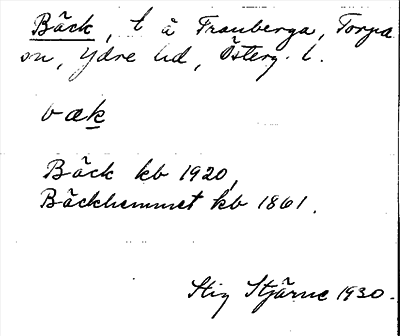 Bäck, t å Franberga, Torpa
sn, Ydre hd, Österg. l.
bæk
Bäck kb 1920,
Bäckhemmet kb 1861.
Stig Stjärne 1930.